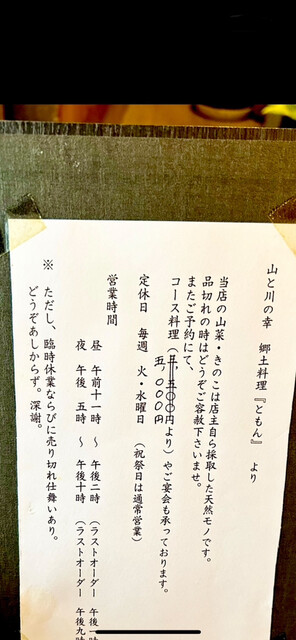 山と川の幸　郷土料理『ともん』　より
当店の山菜・きのこは店主自ら採取した天然モノです。
品切れの時はどうぞご容赦下さいませ。
またご予約にて、
コース料理（五,五〇〇円より）やご宴会も承っております。
五,〇〇〇円
定休日　毎週　火・水曜日　（祝祭日は通常営業）
営業時間
昼　午前十一時　～　午後二時　（ラストオーダー　午後一
夜　午後　五時　～　午後十時　（ラストオーダー　午後九時
※　ただし、臨時休業ならびに売り切れ仕舞いあり。
どうぞあしからず。深謝。